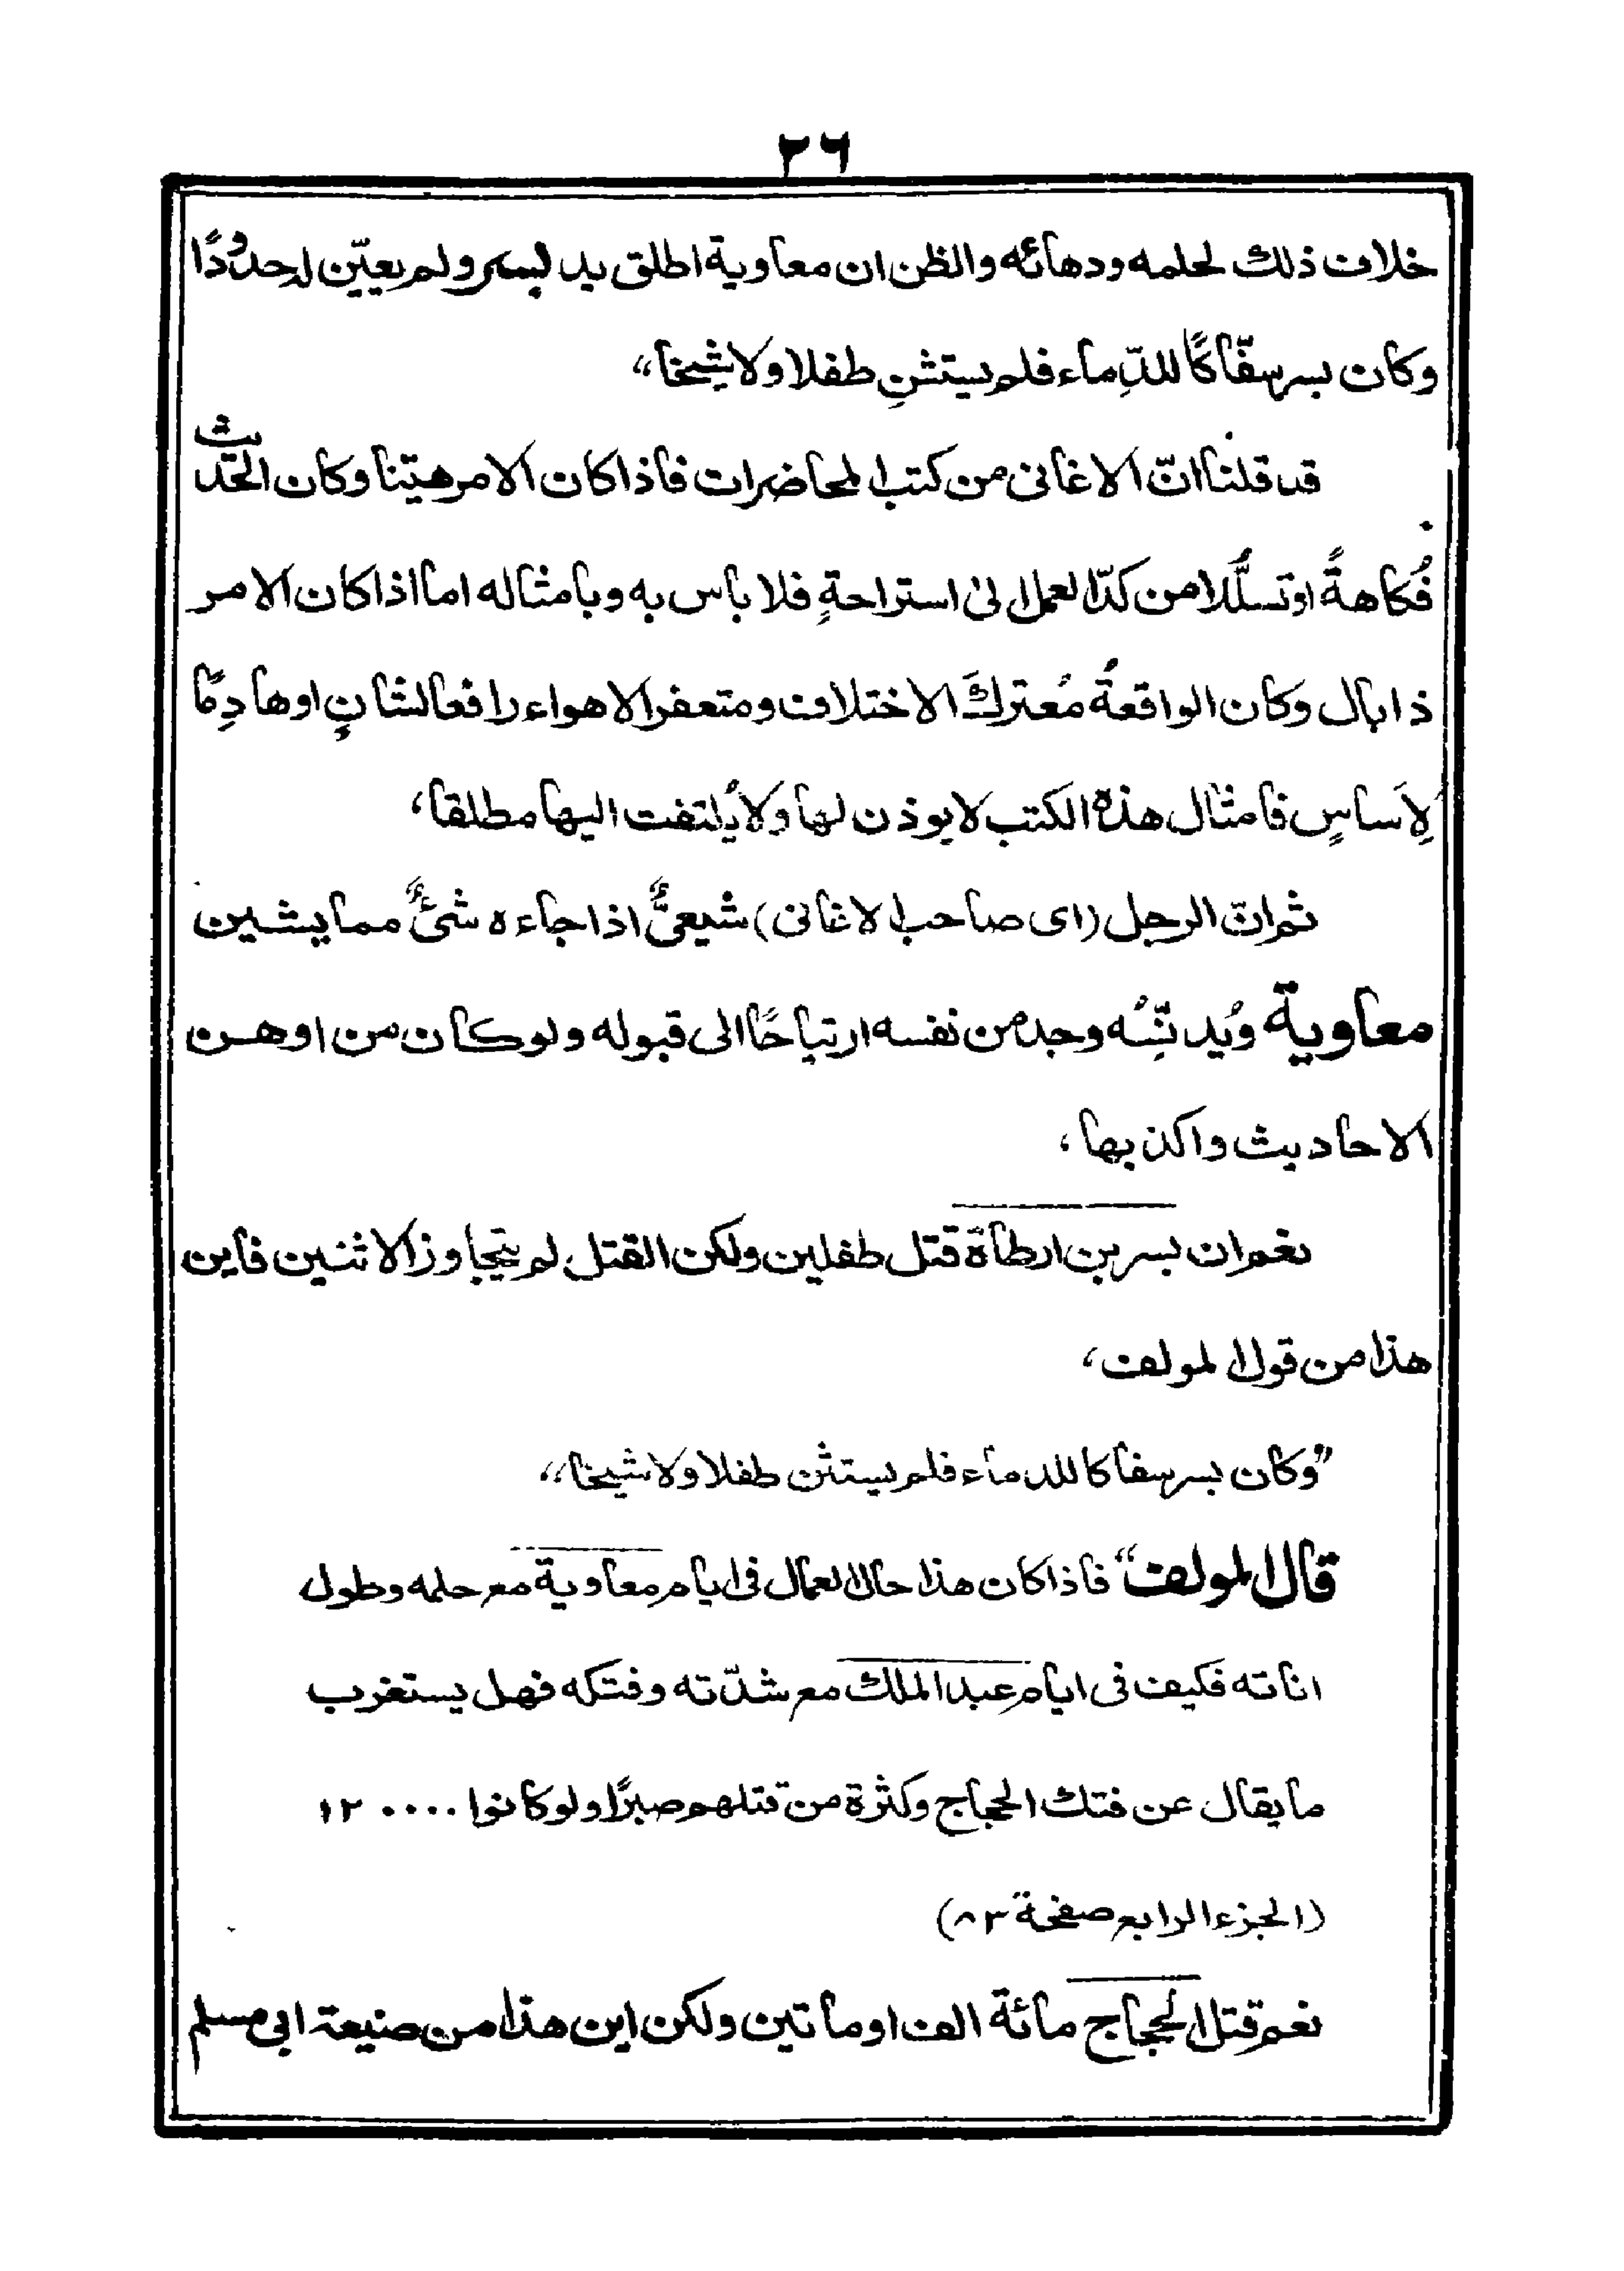 ٢٦
خلاف ذلك لحلمه ودهائه والظن ان معاوية اطلق يد بسر ولم يعيّن له حدودًا
وكان بسر سفّاكًا للدِّماء فلم يستثنِ طفلا ولا شيخا“
قد قلنا انّ الاغانى من كتب المحاضرات فاذا كان الامر هيّنا وكان الحديث
فُكاهةً او تسلُّلا من كدّ العمل الىٰ استراحةٍ فلا باس به وبامثاله اما اذا كان الامر
ذا بال وكان الواقعةُ مُعتركَ الاختلاف ومتعفر الاهواء رافعا لشانٍ او هادِمًا
لِاَساسٍ فامثال هذه الكتب لا يوذن لها ولا يُلتفت اليها مطلقا،
ثم انّ الرجل (اى صاحب الاغانى) شيعىٌّ اذا جاءه شئٌ مما يشين
معاوية ويُدنِّسُه وجد من نفسه ارتياحًا الى قبوله ولو كان من اوهن
الاحاديث واكذبها،
نعم ان بسر بن ارطاة قتل طفلين ولكن القتل لم يتجاوز الاثنين فاين
هذا من قول المولف،
”وكان بسر سفاكا للدماء فلم يستثن طفلا ولا شيخا“
قال المولف“ فاذا كان هذا حال العمال فى ايام معاوية مع حلمه وطول
اناته فكيف فى ايام عبد الملك مع شدّته وفتكه فهل يستغرب
ما يقال عن فتك الحجاج وكثرة من قتلهم صبرًا ولو كانوا ١٢٠٠٠٠
(الجزء الرابع صفحة ٨٣)
نعم قتل الحجاج مائة الف او ماتين ولكن اين هذا من صنيعة ابى مسلم